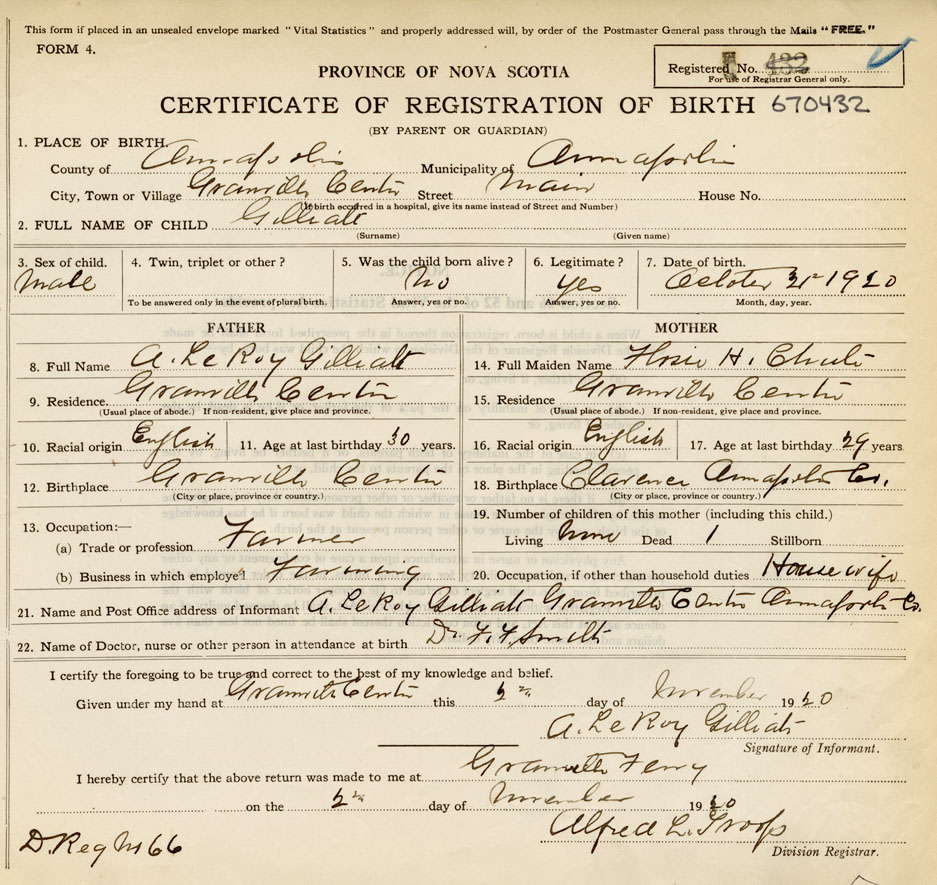 This form if placed in an unsealed envelope marked "Vital Statistics" and properly addressed will, by order of the Postmaster General pass through the Mails "FREE."
FORM 4.
Registered No. 432
For use of Registrar General only.
PROVINCE OF NOVA SCOTIA
CERTIFICATE OF REGISTRATION OF BIRTH 670432
(BY PARENT OR GUARDIAN)
1. PLACE OF BIRTH.
County of Annapolis Municipality of Annapolis
City, Town or Village Granville Centre Street Main House No.
(If birth occurred in a hospital, give its name instead of Street and Number)
2. FULL NAME OF CHILD Gilliatt
(Surname) (Given name)
3. Sex of child. 4. Twin, triplet or other? 5. Was the child born alive? 6. Legitimate? 7. Date of birth.
Male No yes October 1920
To be answered only in the event of plural birth. Answer, yes or no. Answer, yes or no. Month, day, year.
FATHER MOTHER
8. Full Name A. LeRoy Gilliatt 14. Full Maiden Name H. Chute
9. Residence Granville Centre 15. Residence Granville Centre
(Usual place of abode.) If non-resident, give place and province. (Usual place of abode.) If non-resident, give place and province.
10. Racial origin English 11. Age at last birthday 30 years. 16. Racial origin English 17. Age at last birthday 29 years
12. Birthplace Granville Centre 18. Birthplace Clarence Annapolis Co.
(City or place, province or country.) (City or place, province or country.)
13. Occupation:— 19. Number of children of this mother (including this child.)
(a) Trade or profession Farmer Living None Dead 1 Stillborn
(b) Business in which employed Farming 20. Occupation, if other than household duties Housewife
21. Name and Post Office address of Informant A. LeRoy Gilliatt Granville Centre Annapolis Co.
22. Name of Doctor, nurse or other person in attendance at birth Dr. F. F. Smith
I certify the foregoing to be true and correct to the best of my knowledge and belief.
Given under my hand at Granville Centre this 2nd day of November 1920
A. LeRoy Gilliatt
Signature of Informant.
I hereby certify that the above return was made to me at Granville Ferry
on the 2nd day of November 1920
Alfred L. Troop
D. Reg No 66
Division Registrar.